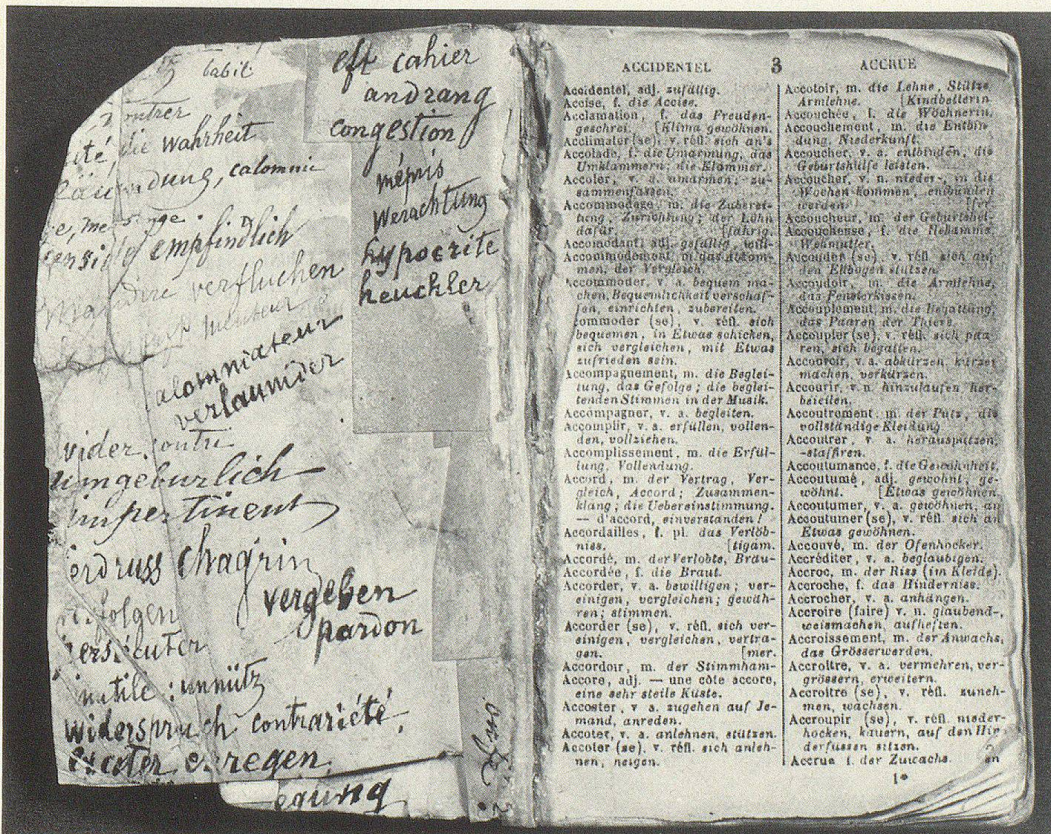 babil
contrer
ité, die Wahrheit
calomnie
empfindlich
dire verfluchen
menteur
calomniateur
verlaumider
wider. contre
umgeburlich
impertinent
erdruss chagrin
vergeben
pardon
rfolgen
ersécuter
inutile : unnütz
widerspruch contrariété,
exciter erregen
egung
eft cahier
andrang
congestion
mépris
Verachtung
hypocrite
heuchler
ACCIDENTEL 3 ACCRUE
Accidentel, adj. zufällig.
Accise, f. die Accise.
Acclamation, f. das Freuden-
geschrei. [Klima gewöhnen.
Acclimater (se), v. réfl. sich an's
Accolade, f. die Umarmung, das
Umklammern; die Klammer.
Accoler, v. a. umarmen; zu-
sammenfassen.
Accommodage, m. die Zuberei-
tung, Zurichtung; der Lohn
dafür. [fährig.
Accomodant, adj. gefällig, will-
Accommodement, m. das Abkom-
men, der Vergleich.
Accommoder, v. a. bequem ma-
chen, Bequemlichkeit verschaf-
fen, einrichten, zubereiten.
commoder (se), v. réfl. sich
bequemen, in Etwas schicken,
sich vergleichen, mit Etwas
zufrieden sein.
Accompagnement, m. die Beglei-
tung, das Gefolge; die beglei-
tenden Stimmen in der Musik.
Accompagner, v. a. begleiten.
Accomplir, v. a. erfüllen, vollen-
den, vollziehen.
Accomplissement, m. die Erfül-
lung, Vollendung.
Accord, m. der Vertrag, Ver-
gleich, Accord; Zusammen-
klang; die Uebereinstimmung.
— d'accord, einverstanden!
Accordailles, f. pl. das Verlöb-
niss. [tigam.
Accordé, m. der Verlobte, Bräu-
Accordée, f. die Braut.
Accorder, v. a. bewilligen; ver-
einigen, vergleichen; gewäh-
ren; stimmen.
Accorder (se), v. réfl. sich ver-
einigen, vergleichen, vertra-
gen. [mer.
Accordoir, m. der Stimmham-
Accore, adj. — une côte accore,
eine sehr steile Küste.
Accoster, v a. zugehen auf Je-
mand, anreden.
Accoter, v. a. anlehnen, stützen.
Accoter (se), v. réfl. sich anleh-
nen, neigen.
Accotoir, m. die Lehne, Stütze,
Armlehne. [Kindbetterin.
Accouchée, f. die Wöchnerin,
Accouchement, m. die Entbin-
dung, Niederkunft.
Accoucher, v. a. entbinden, die
Geburtshilfe leisten.
Accoucher, v. n. nieder-, in die
Wochen kommen, entbunden
werden. [fer.
Accoucheur, m. der Geburtshel-
Accoucheuse, f. die Hebamme,
Wehmutter.
Accouder (se), v. réfl. sich auf
den Ellbogen stützen.
Accoudoir, m. die Armlehne,
das Fensterkissen.
Accouplement, m. die Begattung,
das Paaren der Thiere.
Accoupler (se), v. réfl. sich paa-
ren, sich begatten.
Accourcir, v. a. abkürzen, kürzer
machen, verkürzen.
Accourir, v. n. hinzulaufen her-
beieilen.
Accoutrement, m. der Putz, die
vollständige Kleidung
Accoutrer, v. a. herausputzen,
-staffiren.
Accoutumance, f. die Gewohnheit,
Accoutumé, adj. gewohnt, ge-
wöhnt. [Etwas gewöhnen.
Accoutumer, v. a. gewöhnen, an
Accoutumer (se), v. réfl. sich an
Etwas gewöhnen.
Accouvé, m. der Ofenhocker.
Accréditer, v. a. beglaubigen.
Accroc, m. der Riss (im Kleide).
Accroche, f. das Hinderniss.
Accrocher, v. a. anhängen.
Accroire (faire) v. n. glaubend-,
weismachen, aufheften.
Accroissement, m. der Anwachs,
das Grösserwerden.
Accroître, v. a. vermehren, ver-
grössern, erweitern.
Accroître (se), v. réfl. zuneh-
men, wachsen.
Accroupir (se), v. réfl. nieder-
hocken, kauern, auf den Hin-
derfüssen sitzen.
Accrue f. der Zuwachs.
1*